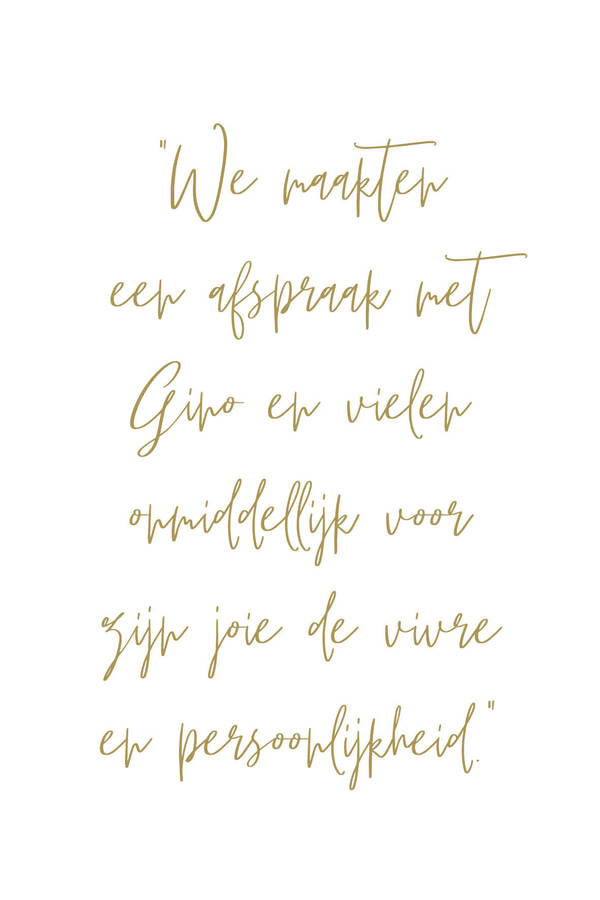 "We maakten
een afspraak met
Gino en vielen
onmiddellijk voor
zijn joie de vivre
en persoonlijkheid."